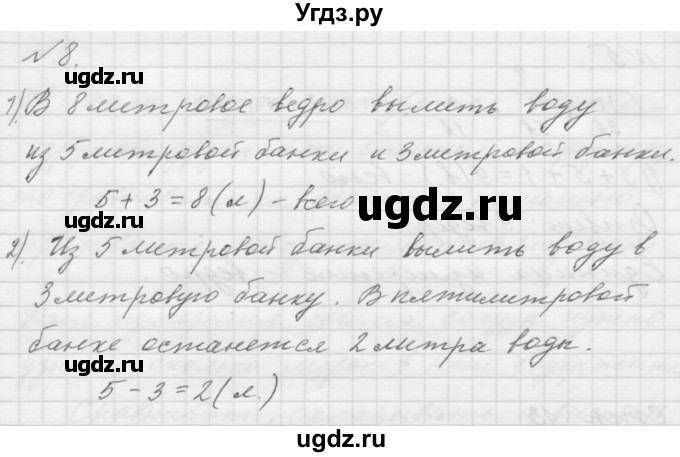 Угдз.ру
№ 8.
1). В 8 литровое ведро вылить воду
из 5 литровой банки и 3 литровой банки.
5 + 3 = 8 (л) - всего
2). Из 5 литровой банки вылить воду в
3 литровую банку. В пятилитровой
банке останется 2 литра воды.
5 - 3 = 2 (л.)
ugdz.ru
ugdz.ru
ugdz.ru
ugdz.ru
ugdz.ru
ugdz.ru
ugdz.ru
ugdz.ru
ugdz.ru